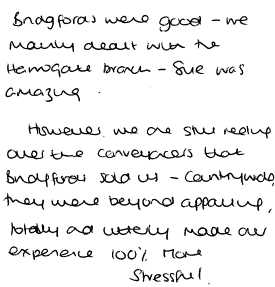 Bridgfords were good - we
mainly dealt with the
Harrogate branch - Sue was
amazing.
However we are still reeling
over the conveyancers that
Bridgfords sold us - Countrywide,
they were beyond appalling,
totally and utterly made our
experience 100% more
stressful!